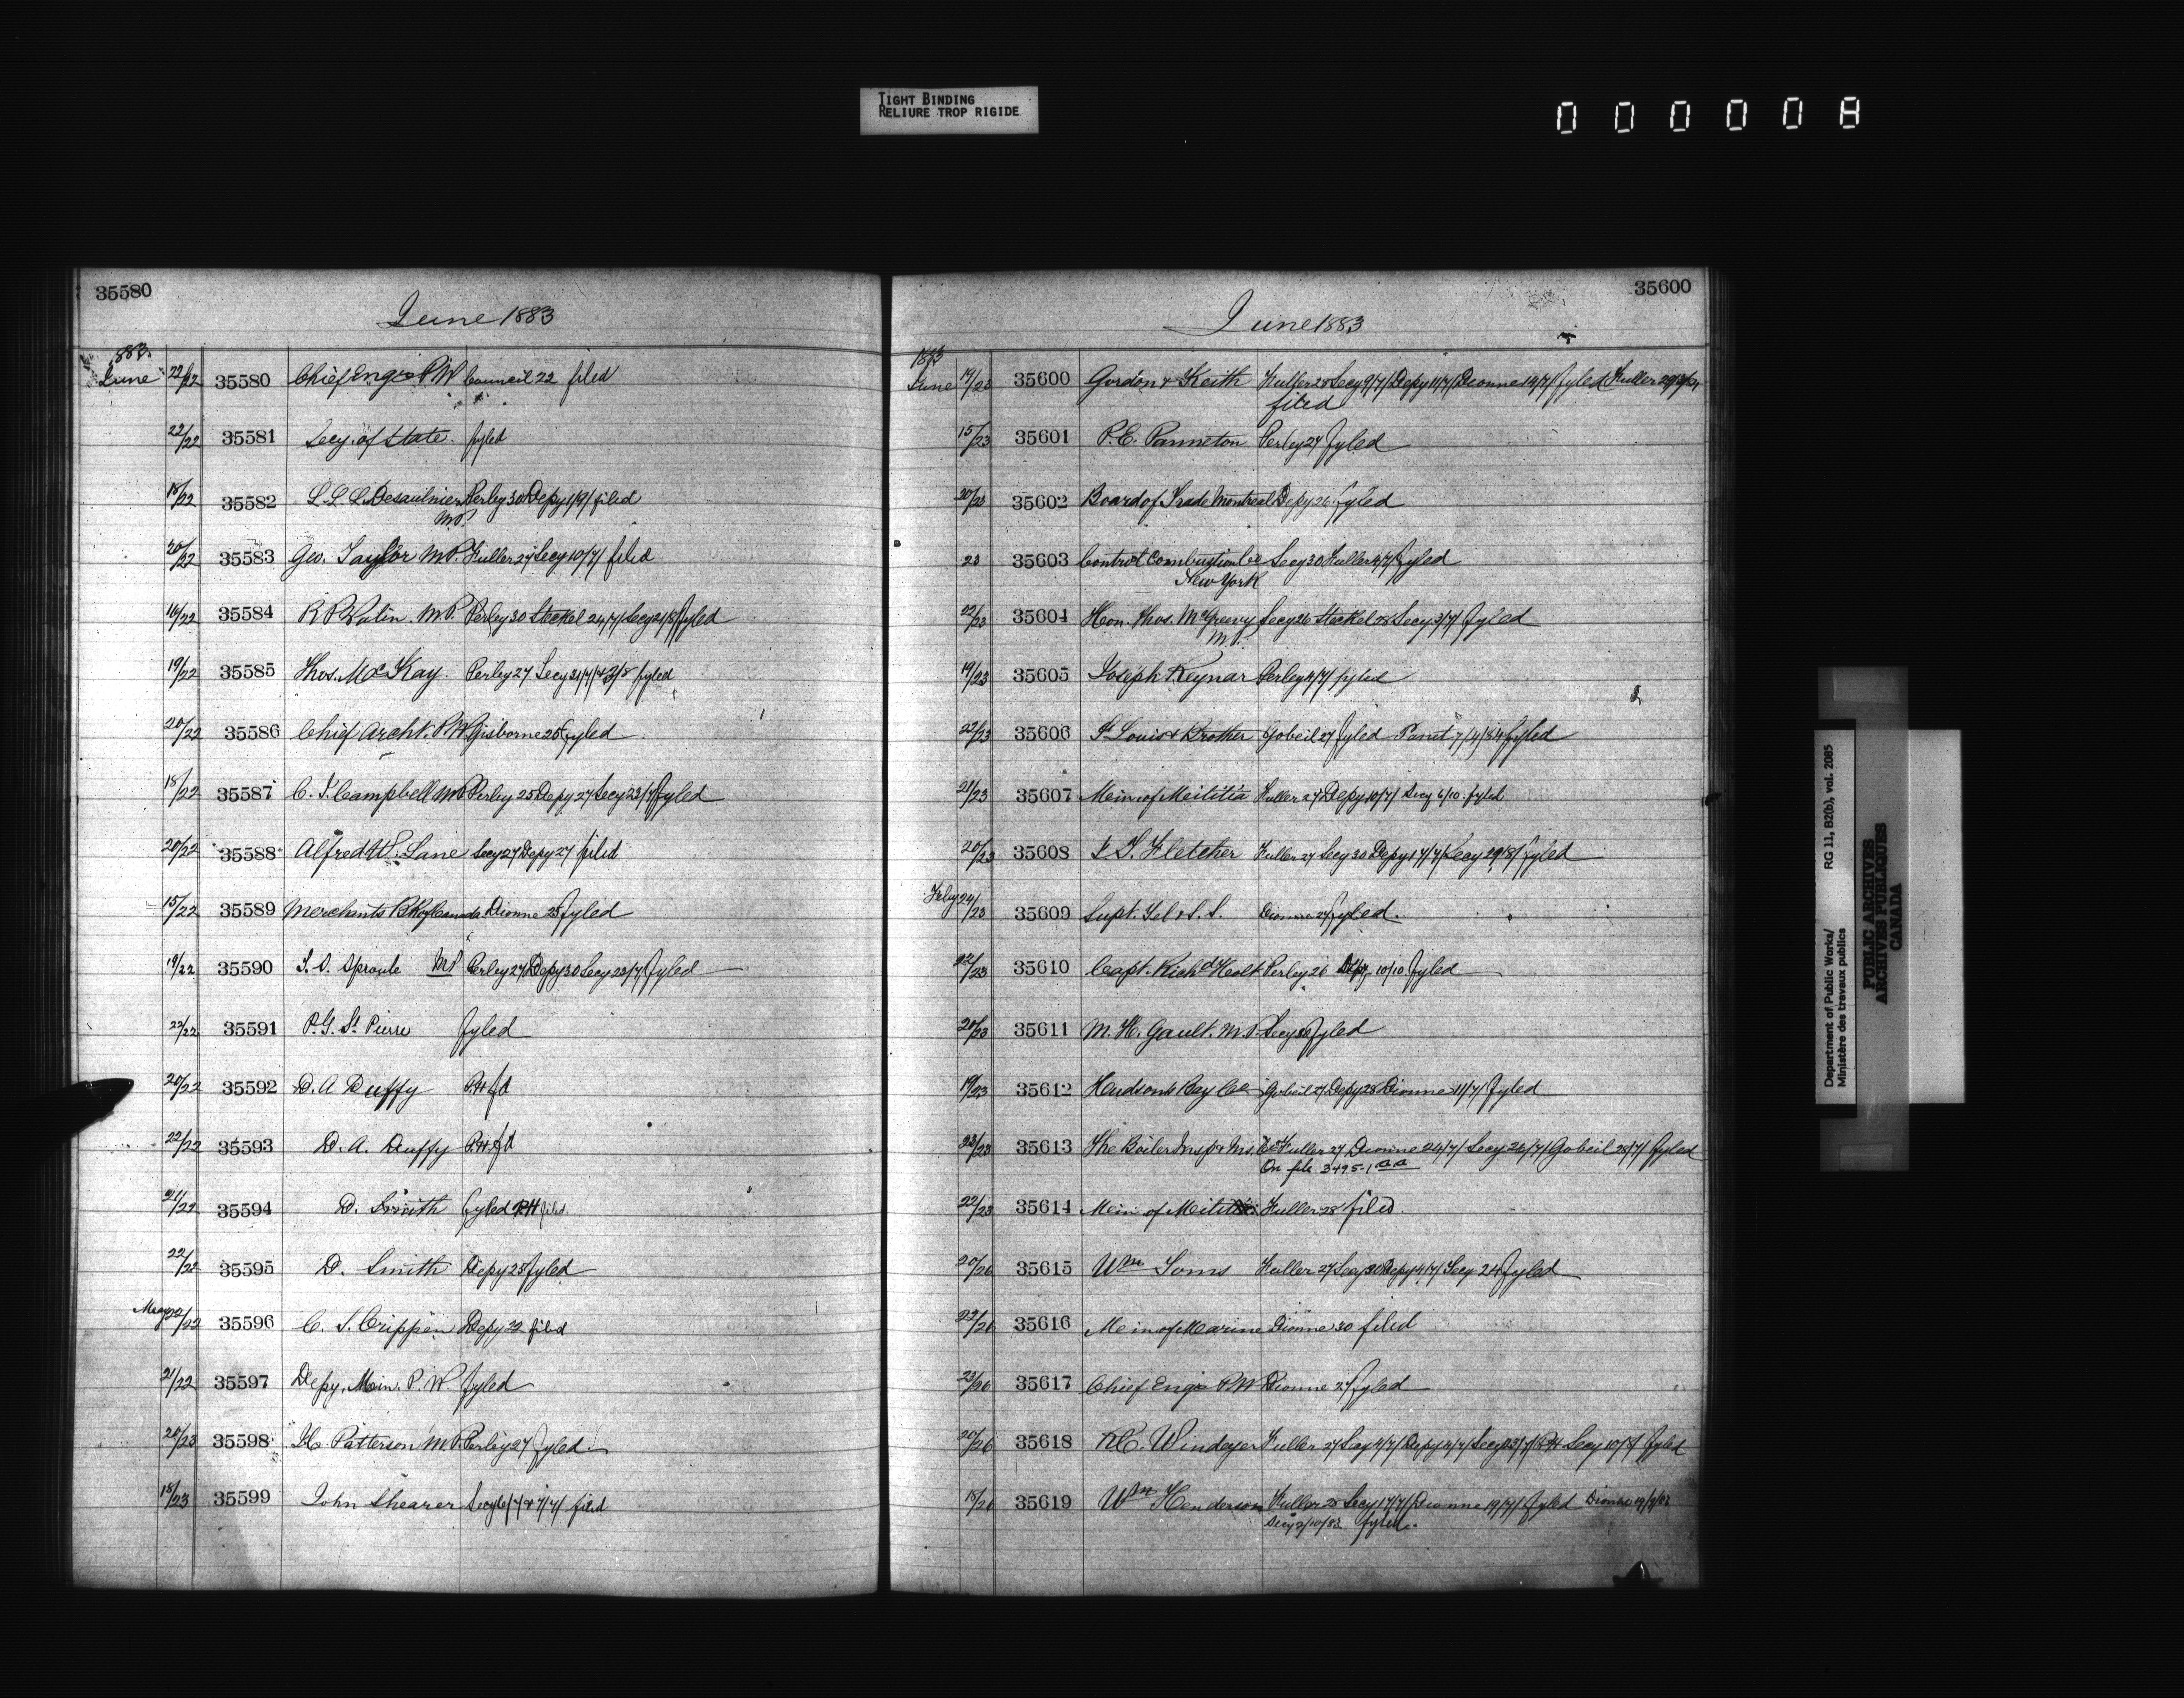 TIGHT BINDING
RELIURE TROP RIGIDE
000008
35580
June 1883
1883
June 22/22 35580 Chief Engr P W Council 22 filed
22/22 35581 Secy. of State. fyled
18/22 35582 L. L. L. Desaulniers Perley 30 Depy 1/9/ filed
M.P.
20/22 35583 Geo. Taylor M.P. Fuller 27 Secy 10/7/ filed
16/22 35584 R P Valin. M.P. Perley 30 Steckel 24/7/ Secy 21/8/ fyled
19/22 35585 Thos. McKay. Perley 27 Secy fyled
20/22 35586 Chief Archt. P.W. Gisborne 25 fyled
18/22 35587 C. J. Campbell M.P. Perley 25 Depy 27 Secy 23/7/ fyled
20/22 35588 Alfred W. Lane Secy 27 Depy 27 filed
15/22 35589 Merchants Bk of Canada Dionne 25 fyled
19/22 35590 T. S. Sproule MP Perley 27 Depy 30 Secy 23/7/ fyled
22/22 35591 P. G. St. Pierre fyled
20/22 35592 D. A Duffy P.H fd
22/22 35593 D. A. Duffy P.H fd
21/22 35594 D. Smith fyled P.H filed
22/22 35595 D. Smith Depy 25 fyled
May 22/22 35596 C. S. Crippen Depy 22 filed
21/22 35597 Depy. Min. P. W fyled
20/23 35598 Patterson M.P. Perley 27 fyled
18/23 35599 John Shearer Secy filed
35600
June 1883
1883
June 19/23 35600 Gordon & Keith Fuller 28 Secy 9/7/ Depy 11/7/ Dionne 14/7/ fyled Fuller
filed
15/23 35601 P. E. Panneton Perley 27 fyled
20/23 35602 Board of Trade Montreal Depy 26 fyled
23 35603 Control Combustion Co Secy 30 Fuller 4/7/ fyled
New York
22/23 35604 Hon. Thos. McGreevy Secy 26 Steckel 28 Secy 3/7/ fyled
M.P.
19/23 35605 Joseph Reynar Perley 4/7/ fyled
22/23 35606 St Louis & Brother Gobeil 27 fyled Panet 7/4/84 fyled
21/23 35607 Min of Militia Fuller 27 Depy 10/7/ Secy 6/10 fyled
20/23 35608 Fletcher Fuller 27 Secy 30 Depy 17/7/ Secy 29/8/ fyled
24/23 35609 Supt. Tel. & S. S. Dionne 27 fyled.
22/23 35610 Capt. Richd Holt Perley 26 Depy 10/10 fyled
20/23 35611 M. H. Gault. M.P. Secy 30 fyled
19/23 35612 Hudsons Bay Co Gobeil 27 Depy 28 Dionne 11/7/ fyled
23/23 35613 The Boiler Insp & Ins. Co Fuller 27 Dionne 24/7/ Secy 26/7/ Gobeil 28/7/ fyled
On file 3495-1 a a
22/23 35614 Min of Militia Fuller 28 filed.
20/26 35615 Wm Toms Fuller 27 Secy 30 Depy 4/7/ Secy 24 fyled
22/26 35616 Min of Marine Dionne 30 filed
23/26 35617 Chief Engr P.W Dionne 27 fyled
20/26 35618 R.C. Windeyer Fuller 27 Secy 4/7/ Depy 4/7/ Secy 23/7/ P.H Secy fyled
18/26 35619 Wm Henderson Fuller 28 Secy 17/7/ Dionne 19/7/ fyled Dionne
Secy 2/10/83 fyled
Department of Public Works/ RG 11, B2(b), vol. 2085
Ministère des travaux publics
PUBLIC ARCHIVES
ARCHIVES PUBLIQUES
CANADA